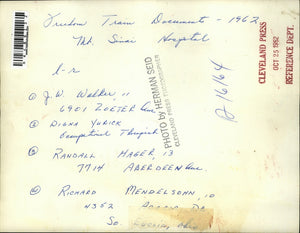 Freedom Train Documents - 1962
Mt. Sinai Hospital
l-r
J.W. Walker 11
6901 Zoeter Ave
Diana Yurick
Occupational Therapist
Randall Hager, 13
7714 Aberdeen Ave.
Richard Mendelsohn, 10
4352
So. Euclid, Ohio
PHOTO by HERMAN SEID
CLEVELAND PRESS PHOTOGRAPHER
CLEVELAND PRESS
OCT 25 1962
REFERENCE DEPT.